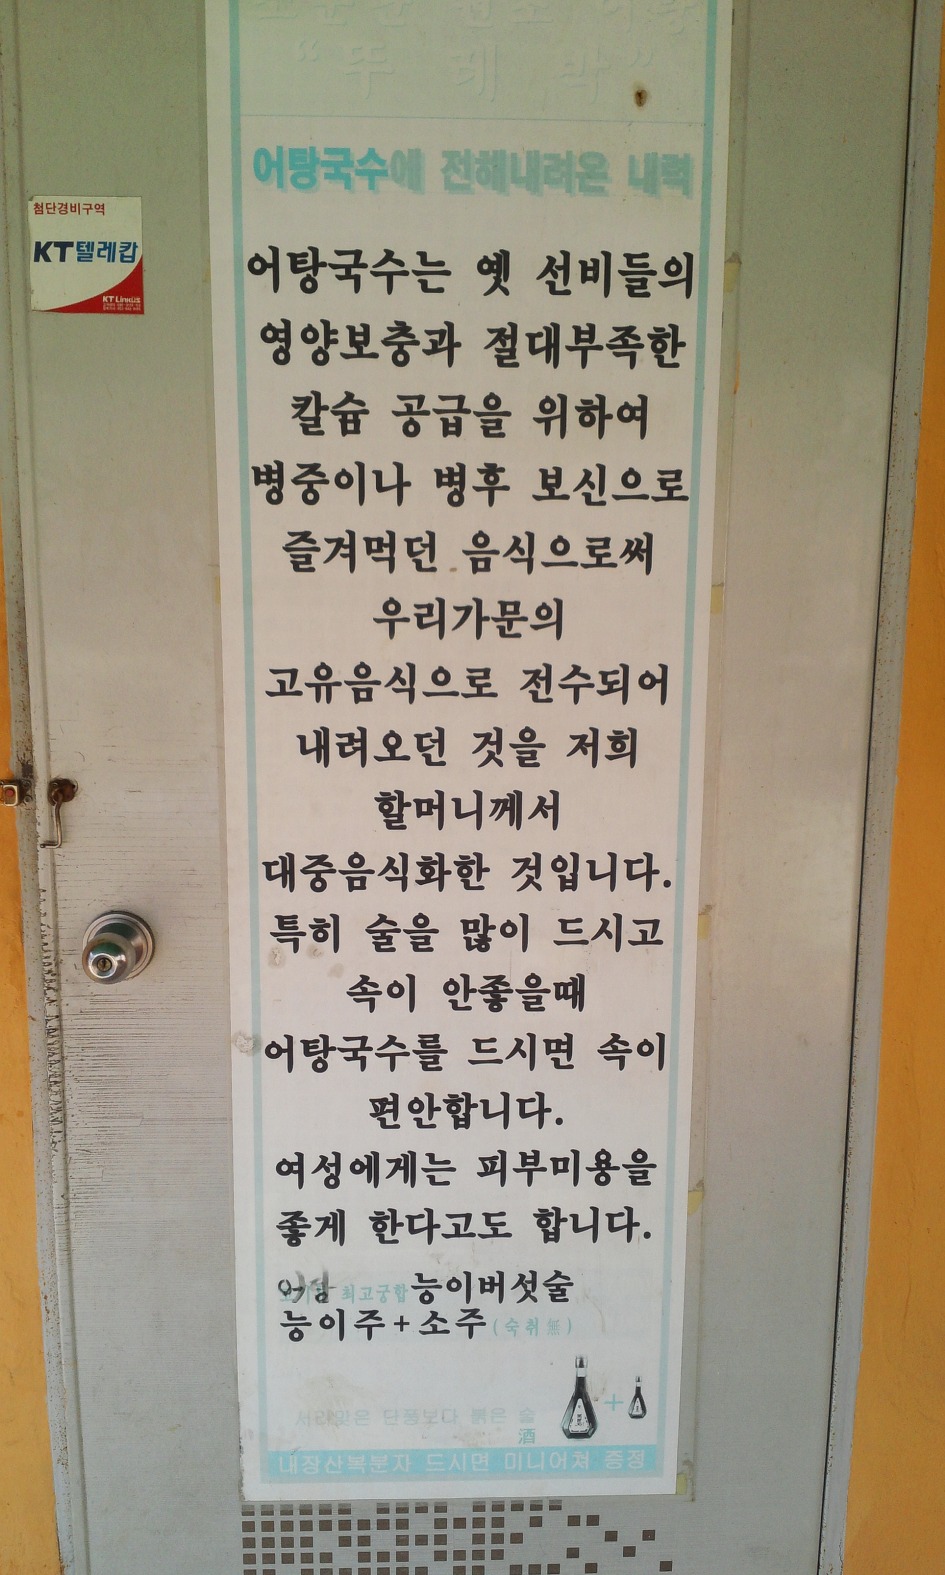 "뚜 레 박"
어탕국수에 전해내려온 내력
첨단경비구역
KT텔레캅
KT Linkus
어탕국수는 옛 선비들의
영양보충과 절대부족한
칼슘 공급을 위하여
병중이나 병후 보신으로
즐겨먹던 음식으로써
우리가문의
고유음식으로 전수되어
내려오던 것을 저희
할머니께서
대중음식화한 것입니다.
특히 술을 많이 드시고
속이 안좋을때
어탕국수를 드시면 속이
편안합니다.
여성에게는 피부미용을
좋게 한다고도 합니다.
최고궁합 능이버섯술
능이주+소주(숙취無)
+
단풍보다 붉은 술
酒
내장산복분자 드시면 미니어쳐 증정